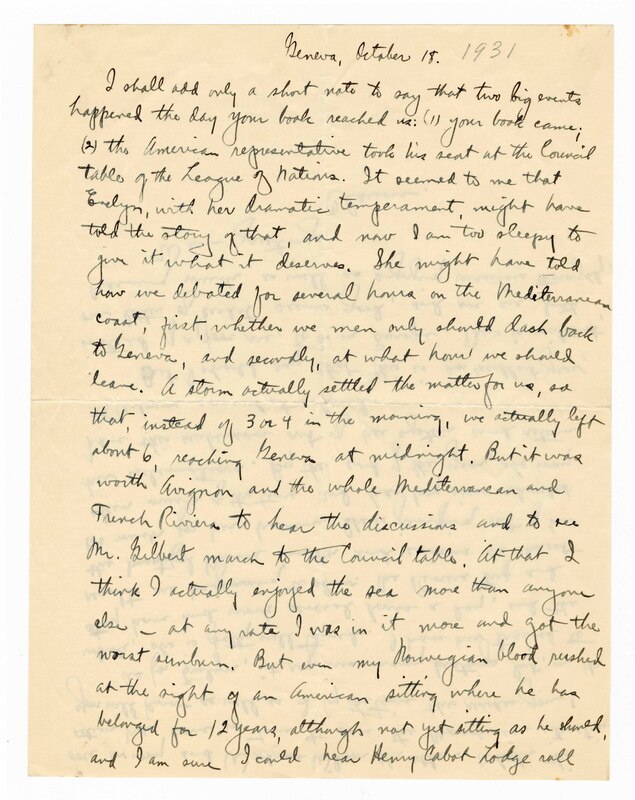 Geneva, October 18. 1931
I shall add only a short note to say that two big events
happened the day your book reached us: (1) your book came;
(2) the American representative took his seat at the Council
table of the League of Nations. It seemed to me that
Evelyn, with her dramatic temperament, might have
told the story of that, and now I am too sleepy to
give it what it deserves. She might have told
how we debated for several hours on the Mediterranean
coast, first, whether we men only should dash back
to Geneva, and secondly, at what hour we should
leave. A storm actually settled the matter for us, so
that, instead of 3 or 4 in the morning, we actually left
about 6, reaching Geneva at midnight. But it was
worth Avignon and the whole Mediterranean and
French Riviera to hear the discussions and to see
Mr. Gilbert march to the Council table. At that I
think I actually enjoyed the sea more than anyone
else – at any rate I was in it more and got the
worst sunburn. But even my Norwegian blood rushed
at the sight of an American sitting where he has
belonged for 12 years, although not yet sitting as he should,
and I am sure I could hear Henry Cabot Lodge roll